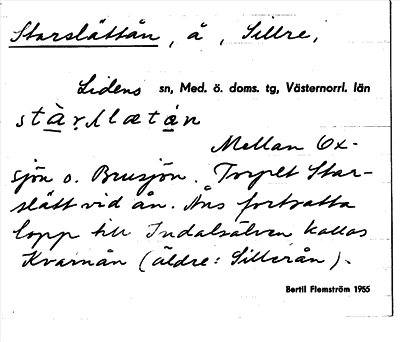 Starslättån, å, Sillre,
Lidens sn, Med. ö. doms. tg, Västernorrl. län
stà̱ṛṣlætá̱n
Mellan Ox-
sjön o. Brusjön. Torpet Star-
slätt vid ån. Åns fortsatta
lopp till Indalsälven kallas
Kvarnån (äldre: Sillerån).
Bertil Flemström 1955